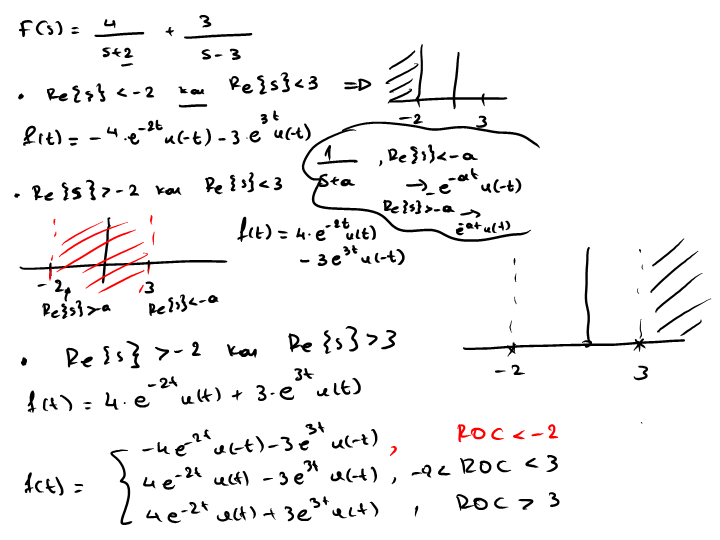 F(s) = 4/(s+2) + 3/(s-3)
• Re{s} < -2 και Re{s} < 3 ⇒
-2 3
f(t) = -4·e^{-2t} u(-t) - 3·e^{3t} u(-t)
1/(s+a) , Re{s} < -a
→ -e^{-at} u(-t)
Re{s} > -a →
e^{-at} u(t)
• Re{s} > -2 και Re{s} < 3
f(t) = 4·e^{-2t} u(t)
- 3e^{3t} u(-t)
-2 3
Re{s} > -a Re{s} < -a
-2 3
• Re{s} > -2 και Re{s} > 3
f(t) = 4·e^{-2t} u(t) + 3·e^{3t} u(t)
f(t) = {
-4e^{-2t} u(-t) - 3e^{3t} u(-t), ROC < -2
4e^{-2t} u(t) - 3e^{3t} u(-t), -2 < ROC < 3
4e^{-2t} u(t) + 3e^{3t} u(t) , ROC > 3